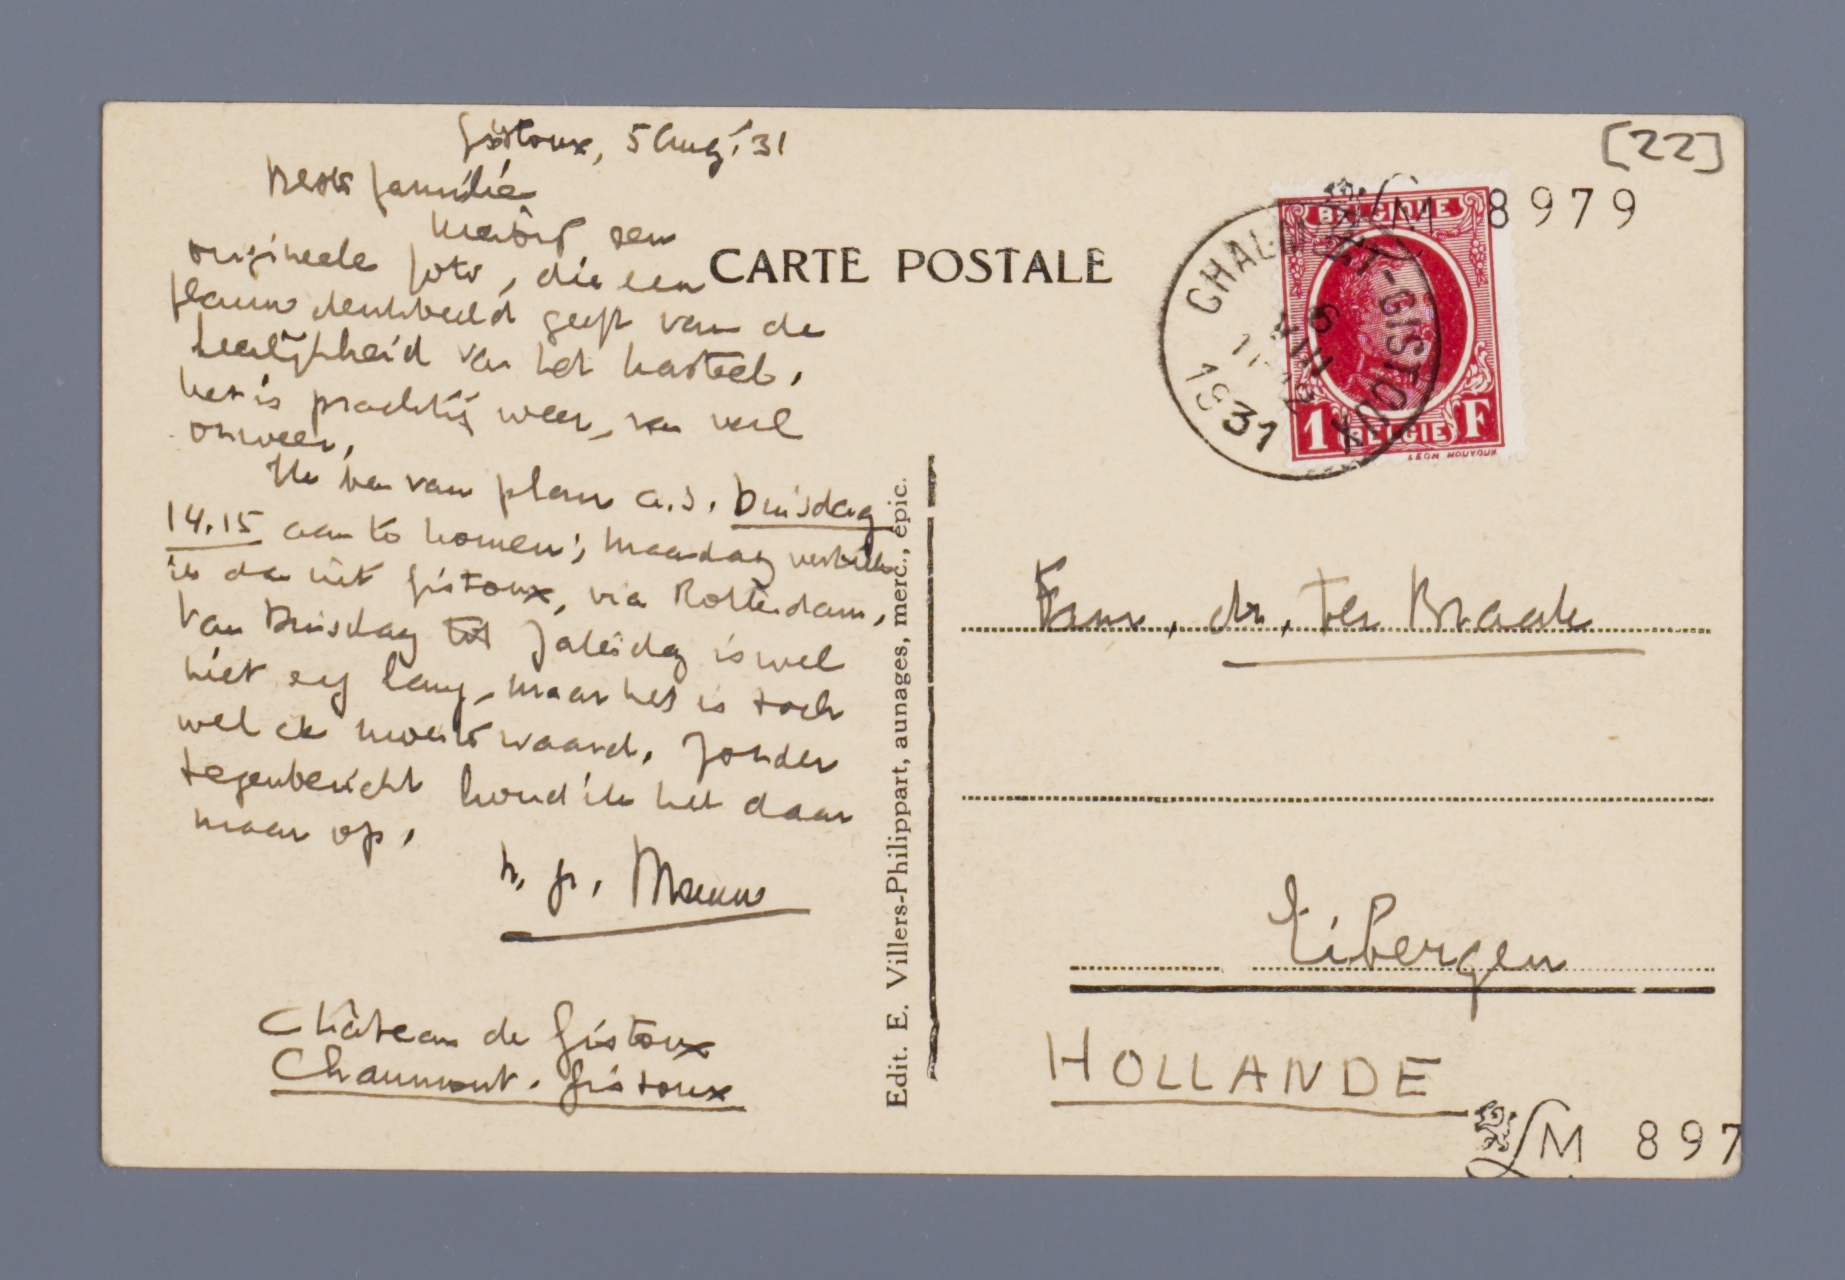 Gistoux, 5 Aug. '31
Beste familie
Hierbij een
origineele foto, die een
flauw denkbeeld geeft van de
heerlijkheid van het kasteel.
Het is prachtig weer, na veel
onweer.
Ik ben van plan a.s. Dinsdag
14.15 aan te komen; Maandag vertrek
ik dan uit Gistoux, via Rotterdam.
Van Dinsdag tot Zaterdag is wel
niet erg lang, maar het is toch
wel de moeite waard. Zonder
tegenbericht houd ik het daar
maar op.
h. gr. Menno
Château de Gistoux
Chaumont-Gistoux
CARTE POSTALE
Edit. E. Villers-Philippart, aunages, merc., épic.
[22]
LM 8979
BELGIQUE
1 F
BELGIE
CHAUMONT-GISTOUX
VIII
1931
Fam. dr. Ter Braak
Eibergen
HOLLANDE
LM 897